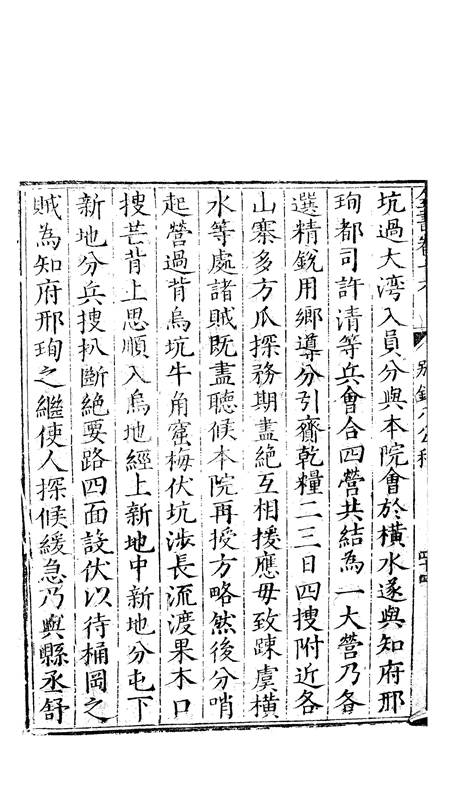 坑過大灣入員分與本院會於橫水遂與知府邢
珣都司許清等兵會合四營共結為一大營乃各
選精銳用鄉導分引齎乾糧二三日四搜附近各
山寨多方爪探務期盡絕互相援應毋致踈虞橫
水等處諸賊既盡聽候本院再授方略然後分哨
起營過背烏坑牛角窰梅伏坑涉長流渡果木口
搜芒背上思順入烏地經上新地中新地分屯下
新地分兵搜扒斷絕要路四面設伏以待桶岡之
賊為知府邢珣之繼使人探候緩急乃與縣丞舒